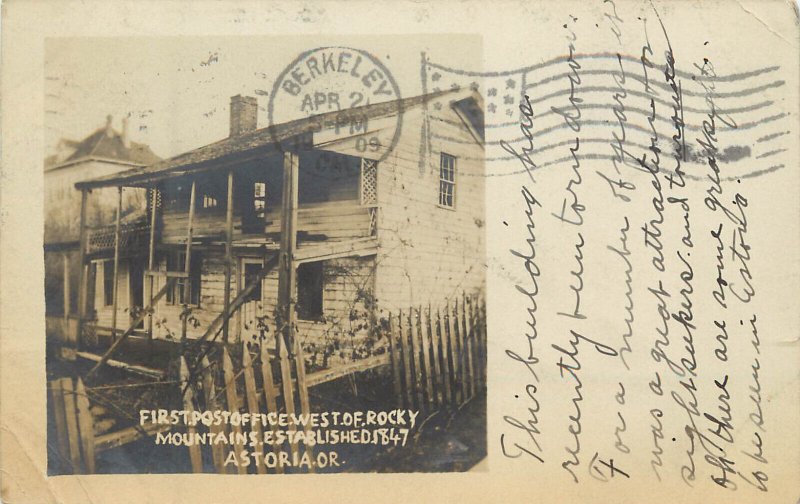 BERKELEY
APR 2
PM
09
CAL
FIRST.POST.OFFICE.WEST.OF.ROCKY
MOUNTAINS.ESTABLISHED.1847
ASTORIA.OR.
This building has
recently been torn down.
For a number of years it
was a great attraction for
sightseekers and tourists
Oh there are some great sights
to be seen in Astoria.